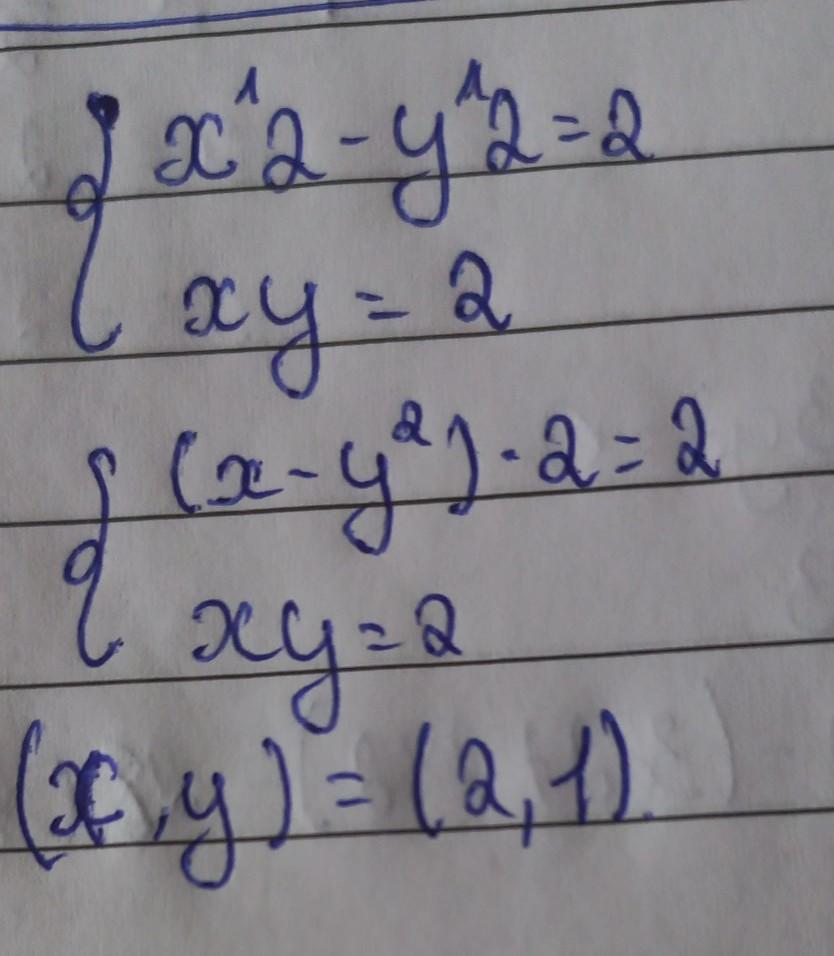 { x^2 - y^2 = 2
xy = 2
{ (x - y²) · 2 = 2
xy = 2
(x, y) = (2, 1).